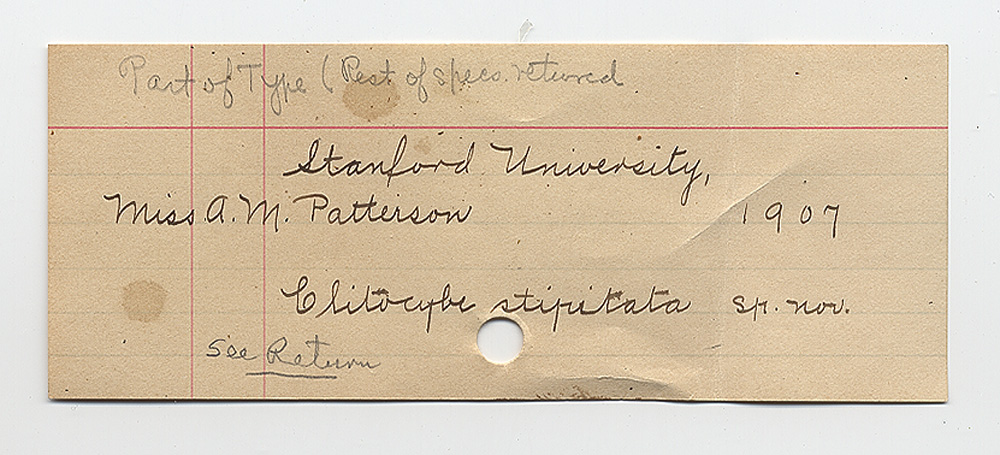 Part of Type (Rest of specs. returned
Stanford University,
Miss A. M. Patterson 1907
Clitocybe stipitata sp. nov.
See Return